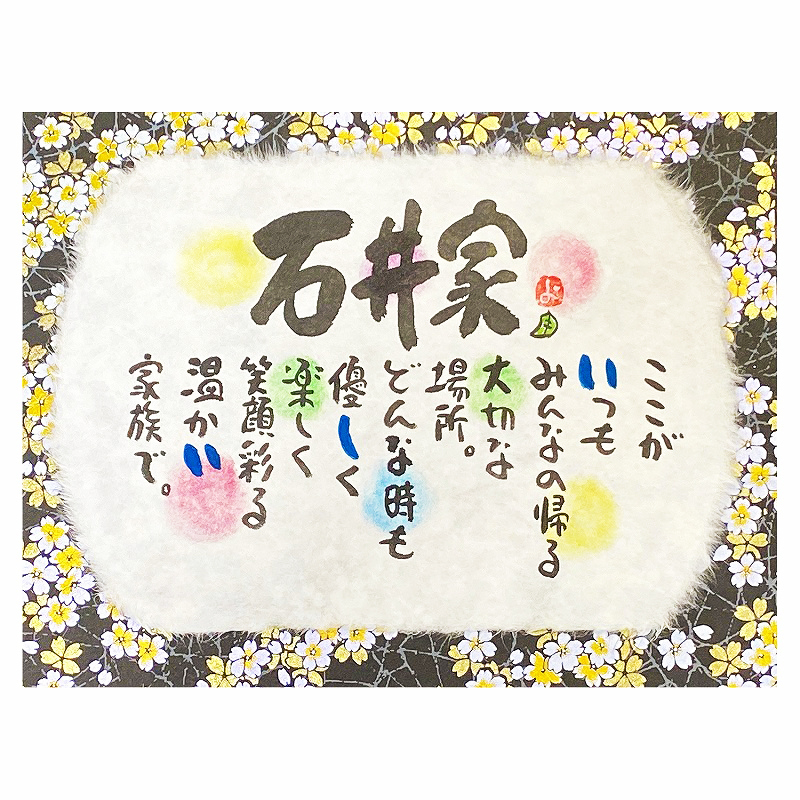 石井家
ここが
いつも
みんなの帰る
大切な
場所。
どんな時も
優しく
楽しく
笑顔彩る
温かい
家族で。